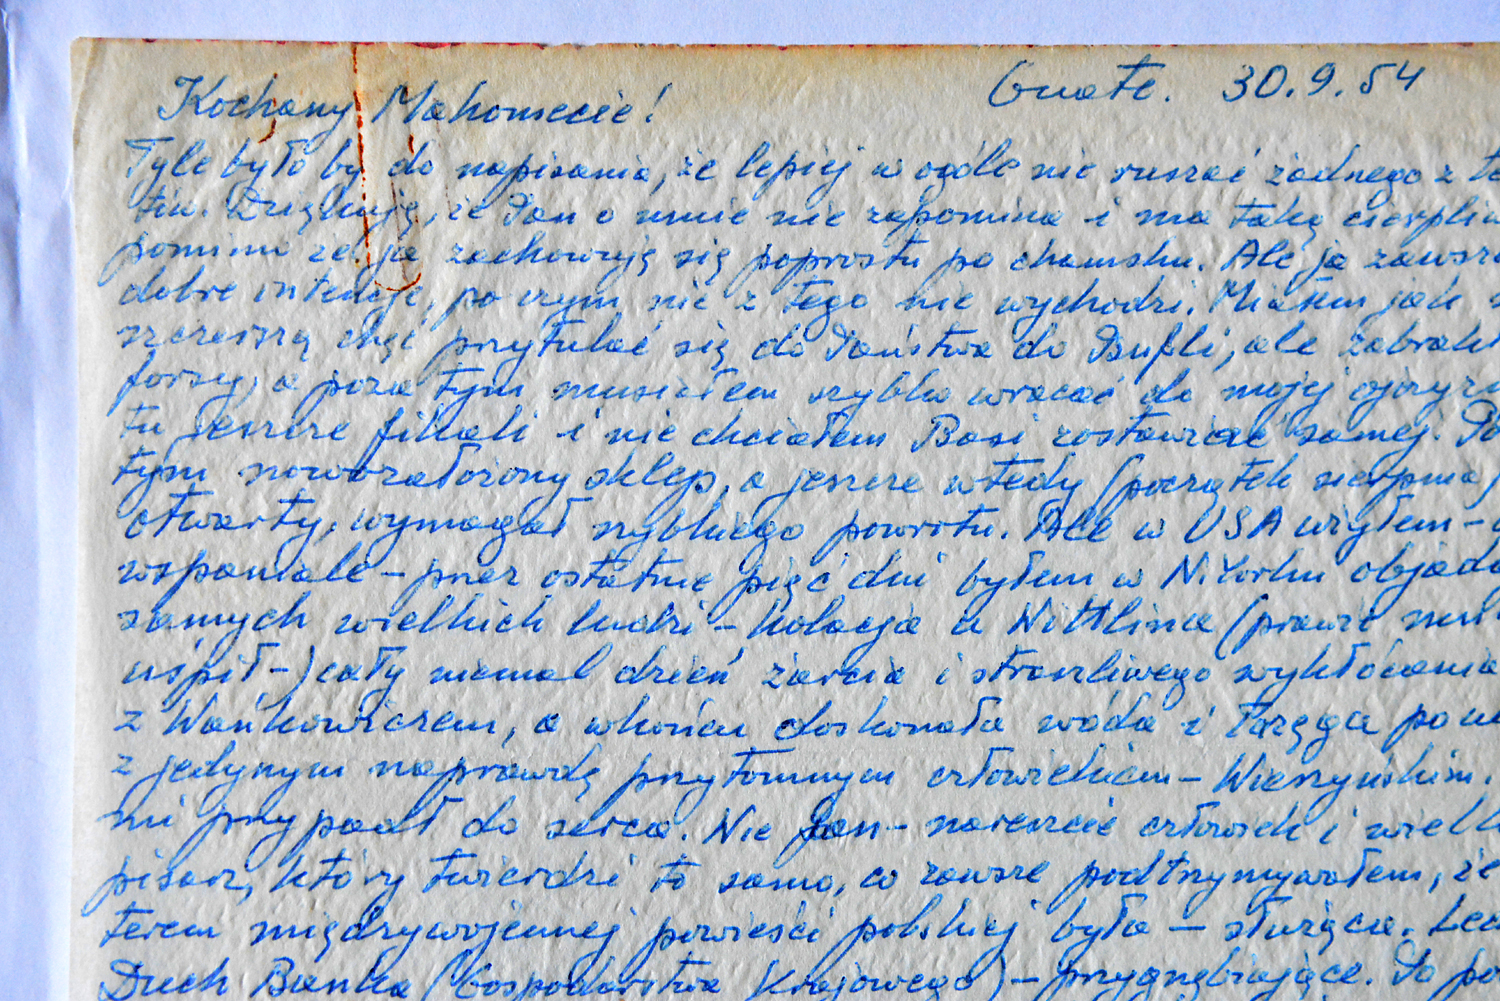 Guate. 30.9.54
Kochany Mahomecie!
Tyle było by do napisania, że lepiej w ogóle nie ruszać żadnego z te
tów. Dziękuję, że Pan o mnie nie zapomina i ma taką cierpliw
pomimo że ja zachowuję się poprostu po chamsku. Ale ja zawsze
dobre intencje, po czym nic z tego nie wychodzi. Miałem jak
szczerszą chęć przytulać się do Państwa do Bufli, ale zabrakł
forsy, a poza tym musiałem szybko wracać do mojej ojczyzn
tu jeszcze filiali i nie chciałem Basi zostawiać samej. Po
tym nowozałożony sklep, a jeszcze wtedy (początek sierpnia)
otwarty, wymagał szybkiego powrotu. Ale w USA użyłem –
wspaniale – przez ostatnie pięć dni byłem w N.Yorku objad
samych wielkich ludzi – kolacja u Wittlina (prawie mnie
uśpił –) cały niemal dzień żarcia i straszliwego wykłócania
z Wańkowiczem, a wkońcu doskonała wóda i tęga
z jedynym naprawdę przytomnym człowiekiem – Wierzyńskim.
mi przypadł do serca. Nie Pan – nareszcie człowiek i wielk
pisarz, który twierdzi to samo, co zawsze podtrzymywałem, że
terem międzywojennej powieści polskiej była – służąca.
Duch Banka (Gospodarstwa Krajowego) – przygnębiające. To po